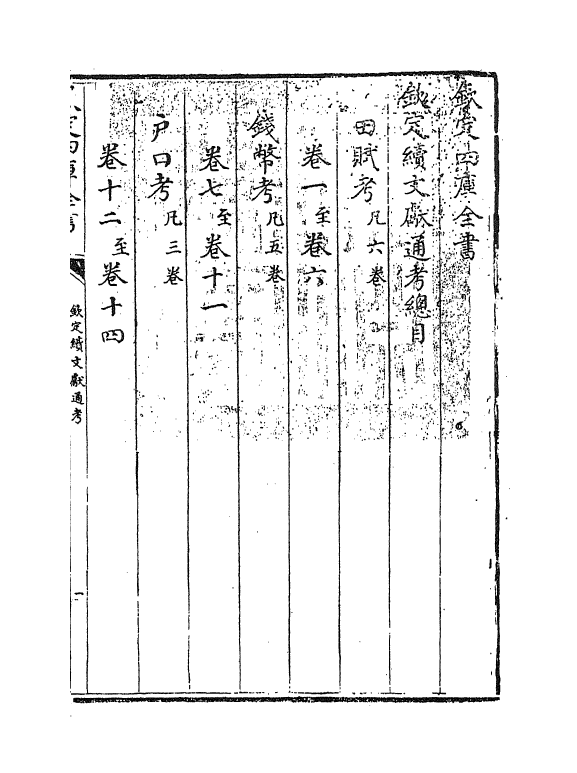 欽定四庫全書
欽定續文獻通考總目
田賦考凡六卷
卷一至卷六
錢幣考凡五卷
卷七至卷十一
戸口考凡三卷
卷十二至卷十四
欽定四庫全書
欽定續文獻通考
一